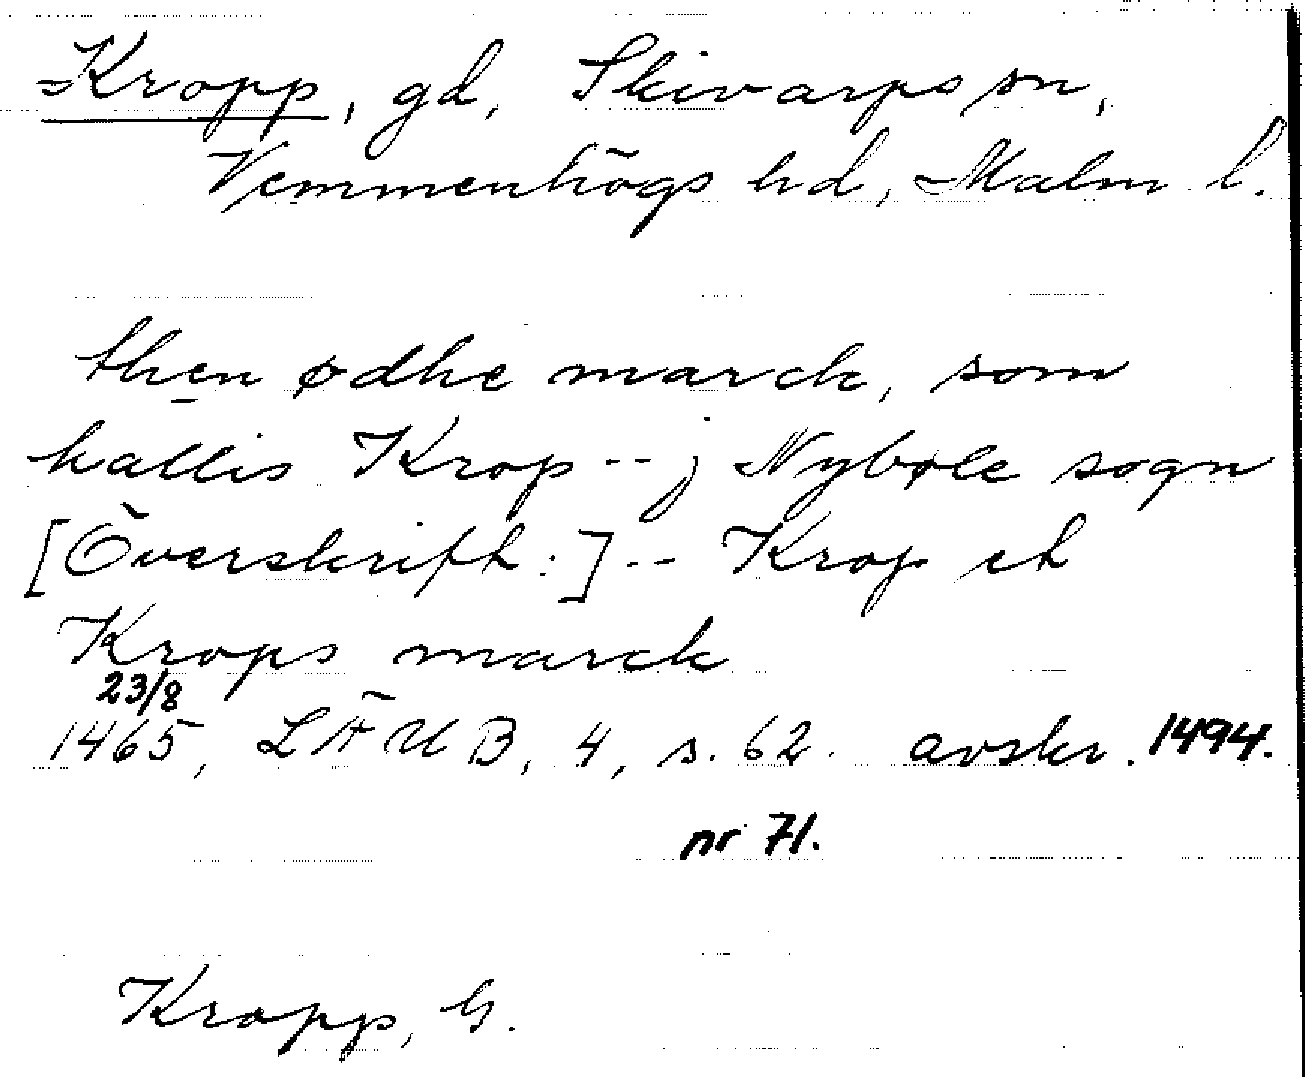 =Kropp, gd, Skivarps sn,
Vemmenhögs hd, Malm. l.
then ødhe marck, som
kallis Krop -- j Nybøle sogn
[Överskrift:] -- Krop et
Krops marck
23/8
1465, LÄUB, 4, s. 62. avskr. 1494.
nr 71.
Kropp, G.